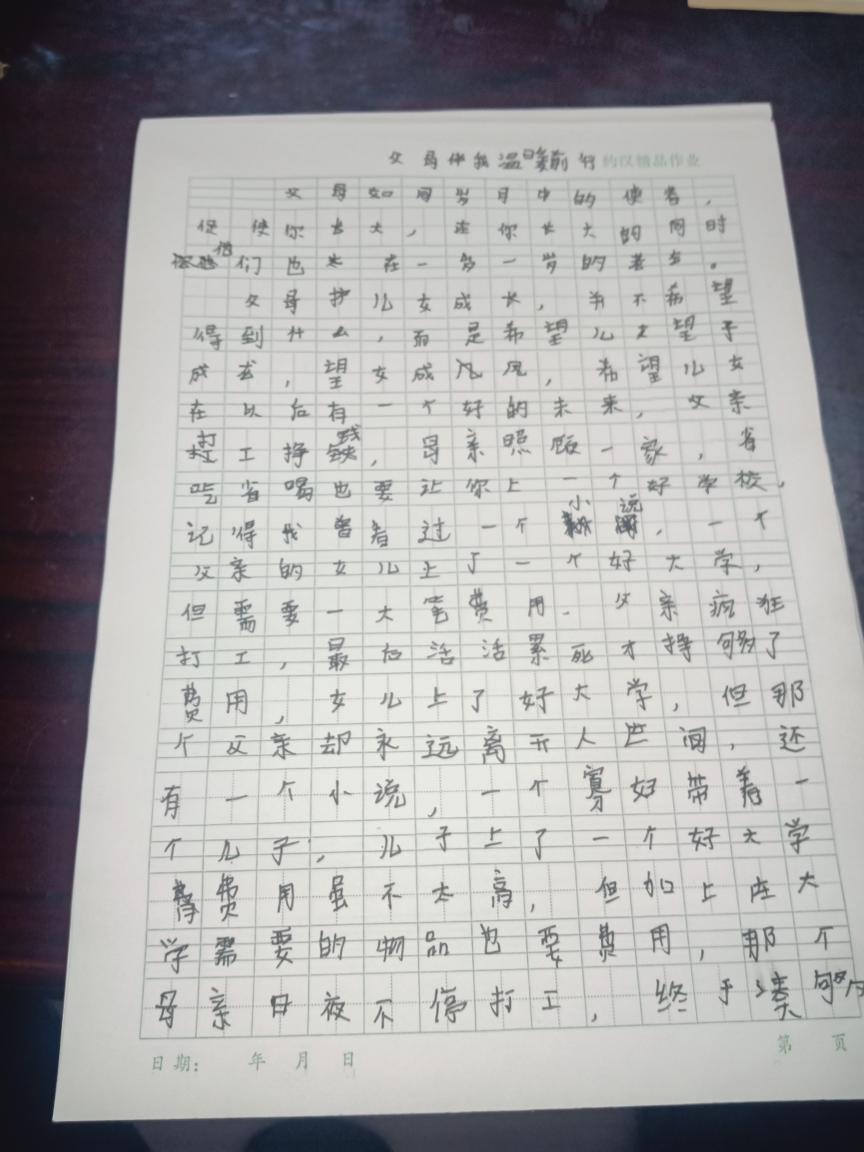 父母伴我温暖前行 约汉精品作业
父母如同岁月中的使者，
促使你长大，在你长大的同时
他们也在一岁一岁的老去。
父母护儿女成长，并不希望
得到什么，而是希望儿女望子
成龙，望女成凤，希望儿女
在以后有一个好的未来，父亲
打工挣钱，母亲照顾一家，省
吃省喝也要让你上一个好学校，
记得我曾看过一个小说，一个
父亲的女儿上了一个好大学，
但需要一大笔费用。父亲疯狂
打工，最后活活累死才挣够了
费用，女儿上了好大学，但那
个父亲却永远离开人世间，还
有一个小说，一个寡妇带着一
个儿子，儿子上了一个好大学
费用虽不太高，但加上在大
学需要的物品也要费用，那个
母亲日夜不停打工，终于凑够
日期： 年 月 日
第 页